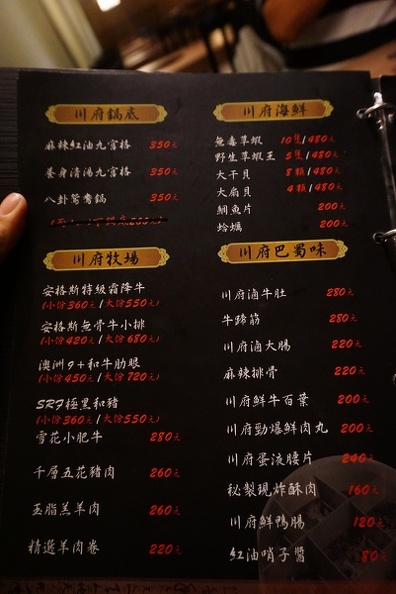 川府鍋底
麻辣紅油九宮格 350元
養身清湯九宮格 350元
八卦鴛鴦鍋 350元
川府牧場
安格斯特級霜降牛
(小份360元/大份550元)
安格斯無骨牛小排
(小份420元/大份680元)
澳洲9+和牛肋眼
(小份450元/大份720元)
SRF極黑和豬
(小份360元/大份550元)
雪花小肥牛 280元
千層五花豬肉 260元
玉脂羔羊肉 260元
精選羊肉卷 220元
川府海鮮
無毒草蝦 10隻/480元
野生草蝦王 5隻/480元
大干貝 8顆/480元
大扇貝 4顆/480元
鯛魚片 200元
蛤蠣 200元
川府巴蜀味
川府滷牛肚 280元
牛蹄筋 280元
川府滷大腸 220元
麻辣排骨 220元
川府鮮牛百葉 200元
川府勁爆鮮肉丸 200元
川府蛋液腰片 240元
秘製現炸酥肉 160元
川府鮮鴨腸 120元
紅油哨子醬 80元